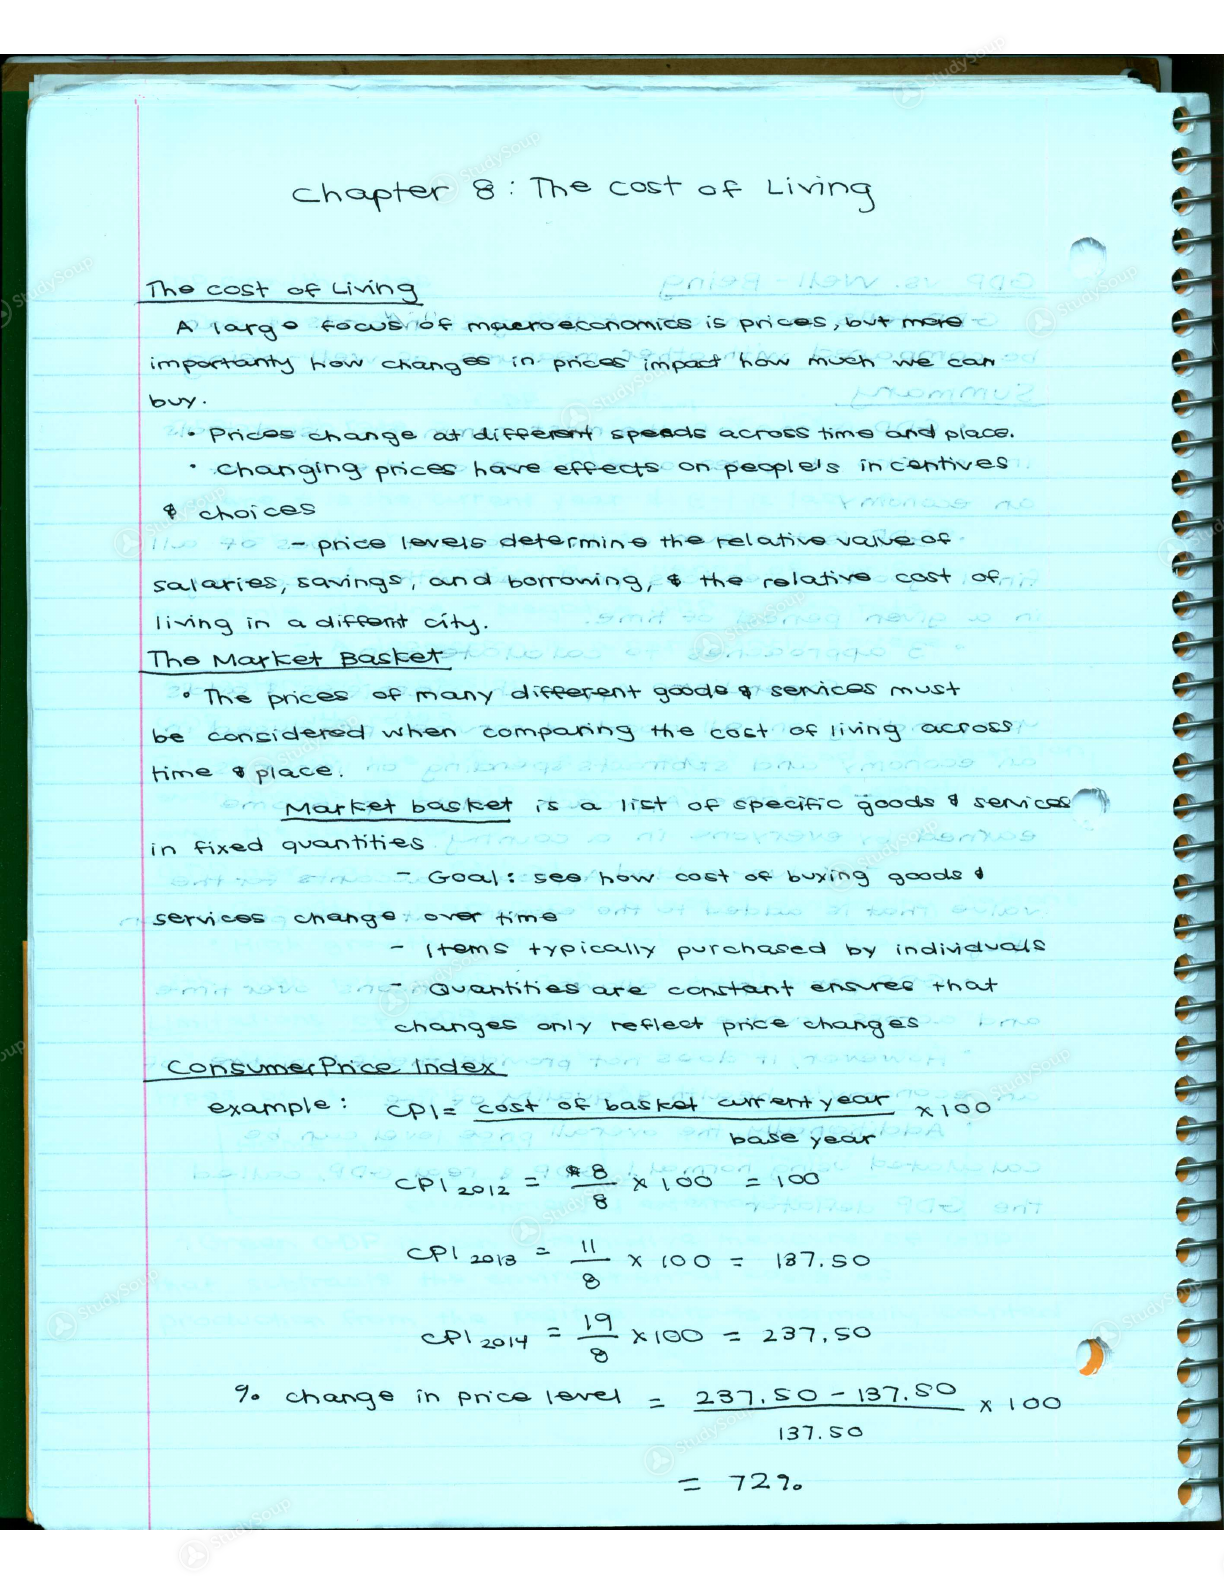 Chapter 8: The Cost of Living
The Cost of Living
A large focus of macroeconomics is prices, but more
importantly how changes in prices impact how much we can
buy.
• Prices change at different speeds across time and place.
• Changing prices have effects on people's incentives
& choices
- price levels determine the relative value of
salaries, savings, and borrowing, & the relative cost of
living in a diffent city.
The Market Basket
• The prices of many different goods & services must
be considered when comparing the cost of living across
time & place.
Market basket is a list of specific goods & services
in fixed quantities
- Goal: see how cost of buying goods &
services change over time
- Items typically purchased by individuals
- Quantities are constant ensures that
changes only reflect price changes
Consumer Price Index
example: CPI = cost of basket current year × 100
base year
CPI 2012 = $8/8 × 100 = 100
CPI 2013 = 11/8 × 100 = 137.50
CPI 2014 = 19/8 × 100 = 237.50
% change in price level = 237.50 - 137.50 × 100
137.50
= 72%
StudySoup